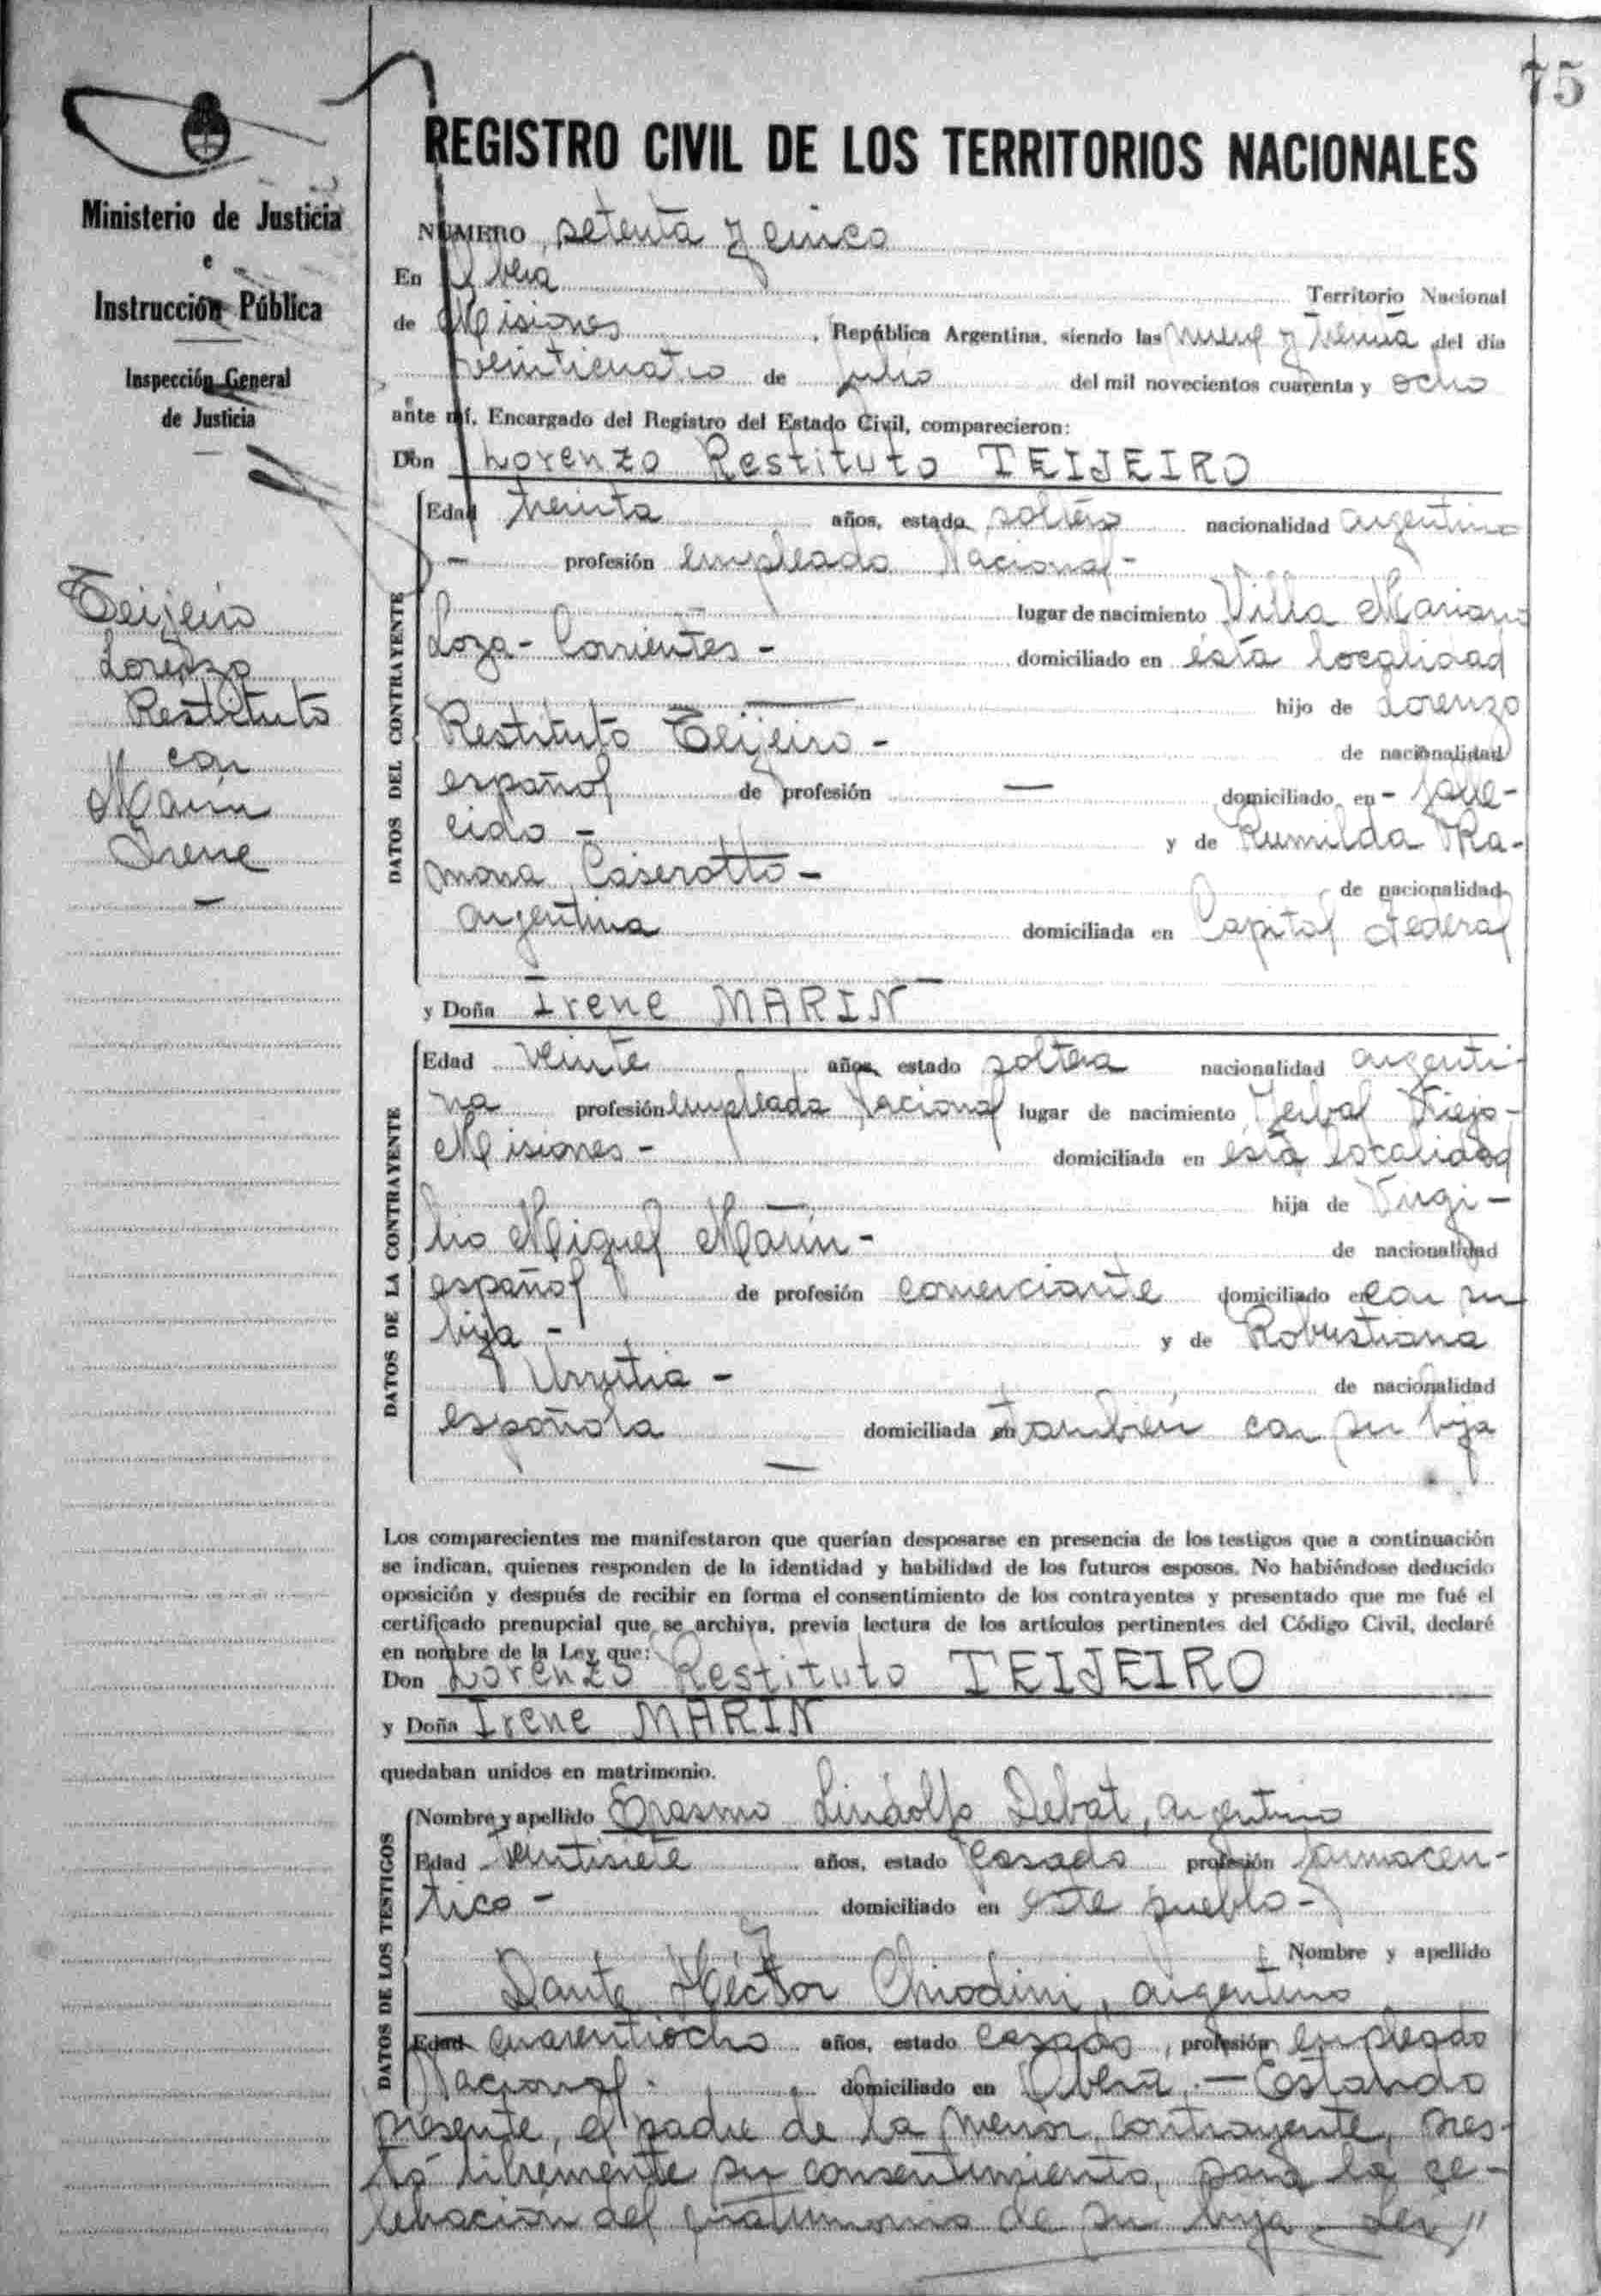 75
REGISTRO CIVIL DE LOS TERRITORIOS NACIONALES
Ministerio de Justicia
e
Instrucción Pública
Inspección General
de Justicia
Teijeiro
Lorenzo
Restituto
con
Marín
Irene
—
NUMERO setenta y cinco
En Oberá Territorio Nacional
de Misiones, República Argentina, siendo las nueve y treinta del día
veinticuatro de julio del mil novecientos cuarenta y ocho
ante mí, Encargado del Registro del Estado Civil, comparecieron:
Don Lorenzo Restituto TEIJEIRO
DATOS DEL CONTRAYENTE
Edad treinta años, estado soltero nacionalidad argentino
— profesión empleado Nacional -
lugar de nacimiento Villa Mariano
Loza - Corrientes - domiciliado en ésta localidad
— hijo de Lorenzo
Restituto Teijeiro - de nacionalidad
español de profesión — domiciliado en - falle-
cido - y de Rumilda Ra-
mona Caserotto - de nacionalidad
argentina domiciliada en Capital Federal
—
y Doña Irene MARIN
DATOS DE LA CONTRAYENTE
Edad veinte años, estado soltera nacionalidad argenti-
na profesión empleada Nacional lugar de nacimiento Yerbal Viejo -
Misiones - domiciliada en ésta localidad
— hija de Virgi-
lio Miguel Marín - de nacionalidad
español de profesión comerciante domiciliado en con su
hija - y de Robustiana
Urrutia - de nacionalidad
española domiciliada en también con su hija
—
Los comparecientes me manifestaron que querían desposarse en presencia de los testigos que a continuación
se indican, quienes responden de la identidad y habilidad de los futuros esposos. No habiéndose deducido
oposición y después de recibir en forma el consentimiento de los contrayentes y presentado que me fué el
certificado prenupcial que se archiva, previa lectura de los artículos pertinentes del Código Civil, declaré
en nombre de la Ley que:
Don Lorenzo Restituto TEIJEIRO
y Doña Irene MARIN
quedaban unidos en matrimonio.
DATOS DE LOS TESTIGOS
Nombre y apellido Erasmo Lindolfo Debat, argentino
Edad ventisiete años, estado casado profesión farmacen-
tico - domiciliado en este pueblo -
Nombre y apellido
Dante Héctor Chiodini, argentino
Edad cuarentiocho años, estado casado, profesión empleado
Nacional. domiciliado en Oberá. — Estando
presente, el padre de la menor contrayente, pres-
tó libremente su consentimiento, para la ce-
lebración del matrimonio de su hija.